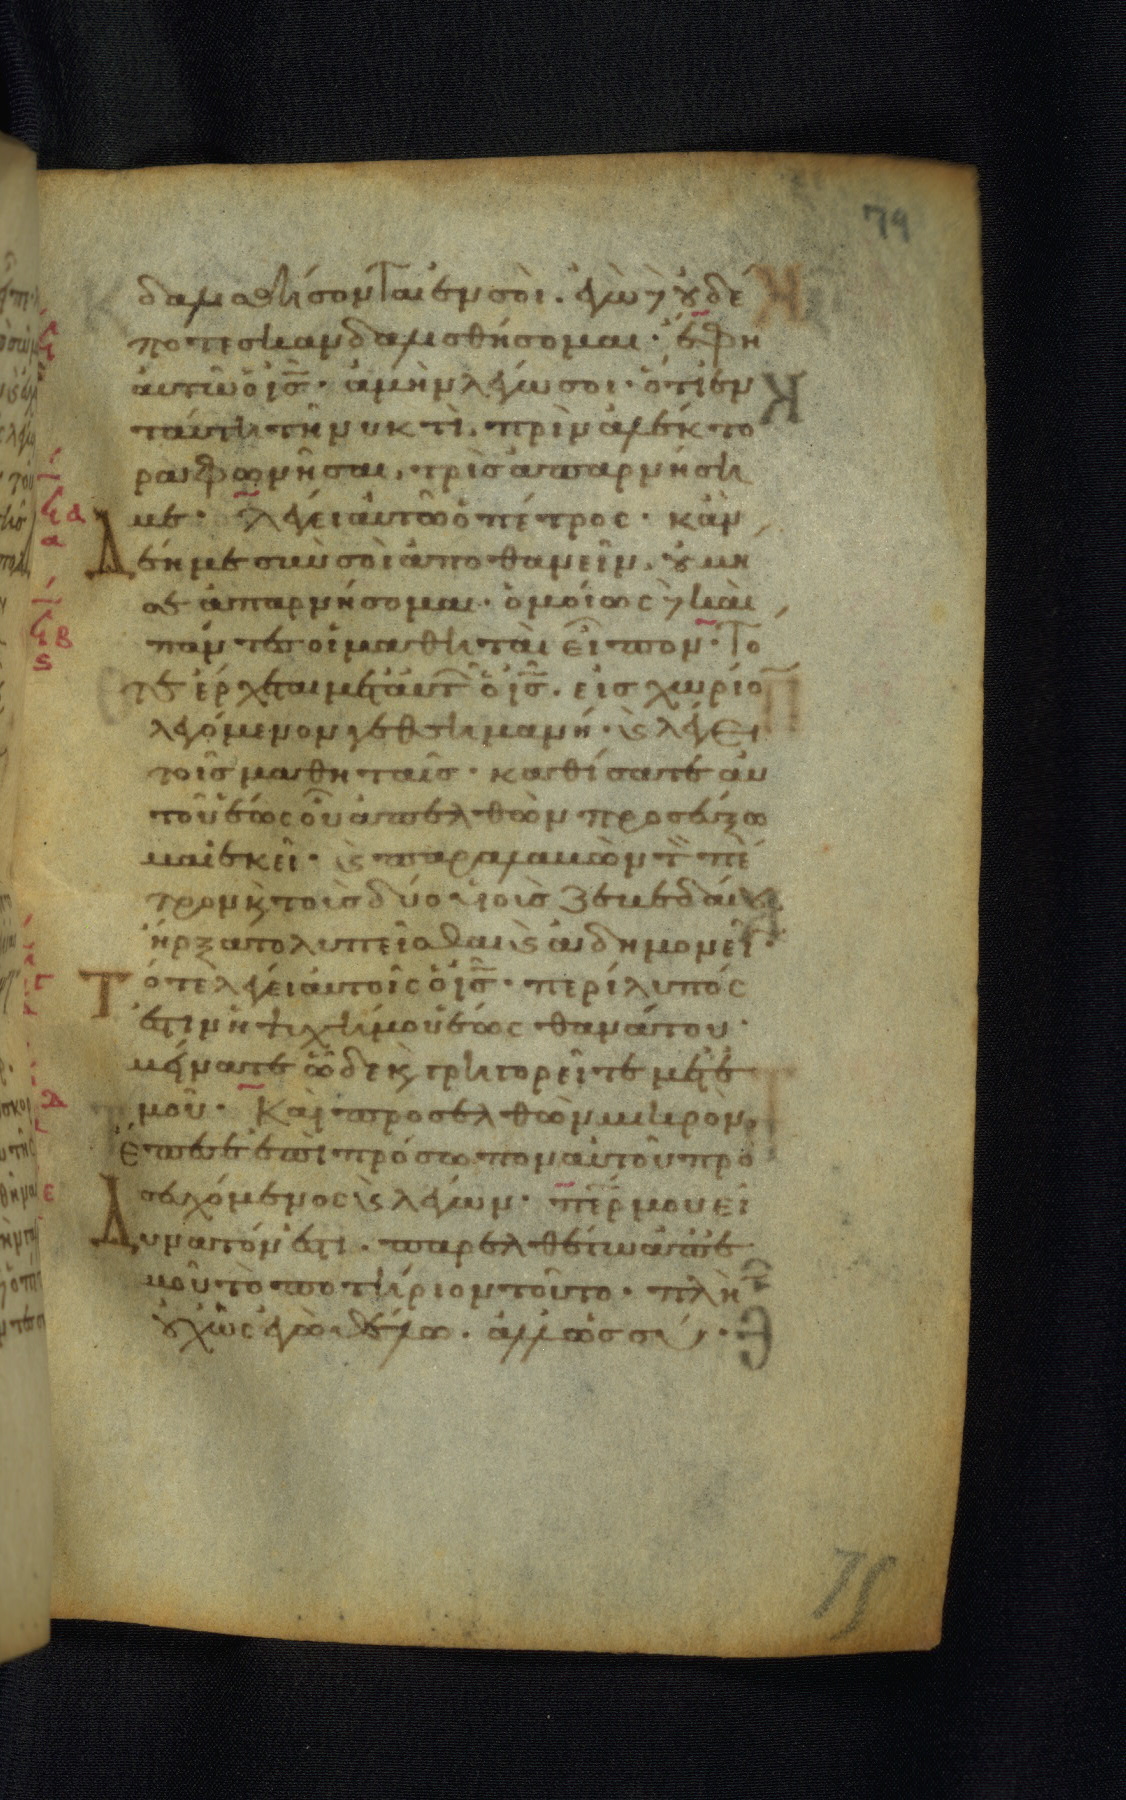 79
δαλισθήσονται ἐν σοὶ. ἐγὼ δὲ οὐδέ
ποτε σκανδαλισθήσομαι· ἔφη
αὐτῶ ὁ ι̅ς̅· ἀμὴν λέγω σοι· ὅτι ἐν
ταύτη τῆ νυκτὶ. πρὶν ἀλέκτο
ρα φωνῆσαι, τρὶς ἀπαρνήση
με· λέγει αὐτῶ ὁ πέτρος· κἂν
δέη με σὺν σοὶ ἀποθανεῖν, οὐ μή
σε ἀπαρνήσομαι· ὁμοίως δὲ καὶ
πάντες οἱ μαθηταὶ εἶπον· Τό
τε ἔρχεται μετ' αὐτῶν ὁ ι̅ς̅. εἰς χωρίον
λεγόμενον γεθσημανή· ϗ λέγει
τοῖς μαθηταῖς· καθίσατε αὐ
τοῦ ἕως οὗ ἀπελθὼν προσεύξω
μαι ἐκεῖ· ϗ παραλαβὼν τὸν πέ
τρον ϗ τοὺς δύο υἱοὺς ζεβεδαίου
ἤρξατο λυπεῖσθαι ϗ ἀδημονεῖν·
Τότε λέγει αὐτοῖς ὁ ι̅ς̅· περίλυπός
ἐστιν ἡ ψυχή μου ἕως θανάτου·
μείνατε ὧδε ϗ γρηγορεῖτε μετ' ἐ
μοῦ· Καὶ προσελθὼν μικρὸν,
ἔπεσεν ἐπὶ πρόσωπον αὐτοῦ προ
σευχόμενος ϗ λέγων· π̅ε̅ρ̅ μου εἰ
Δυνατόν ἐστι. παρελθέτω ἀπ' ἐ
μοῦ τὸ ποτήριον τοῦτο· πλὴν
οὐχ ὡς ἐγὼ θέλω. ἀλλ' ὡς σύ·
75